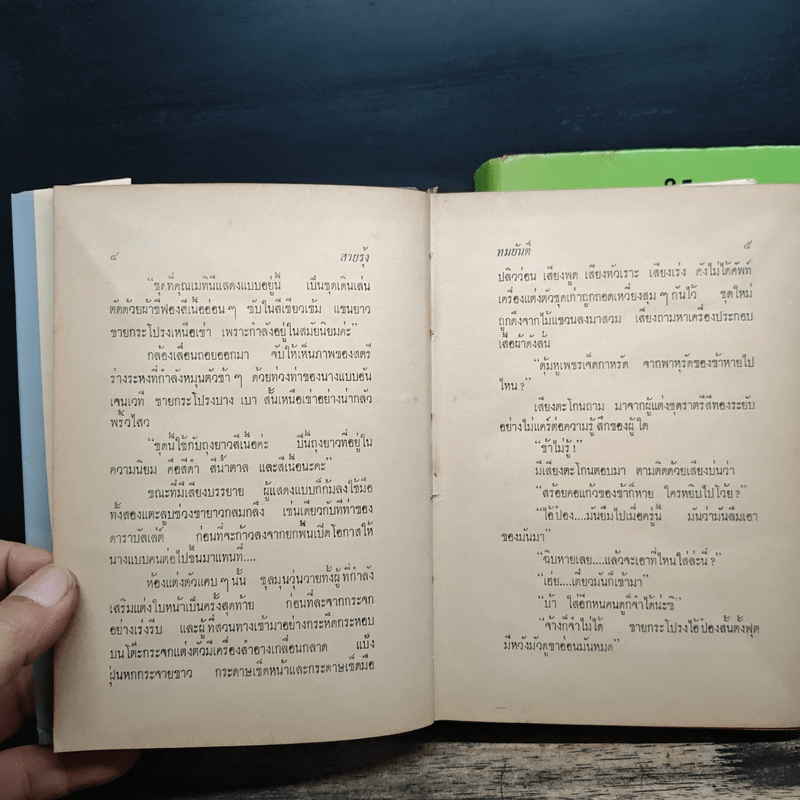 ๔ สายรุ้ง
“ชุดที่คุณเมทินีแสดงแบบอยู่นี้ เป็นชุดเดินเล่น
ตัดด้วยผ้าชีฟองสีเนื้ออ่อน ๆ ซับในสีเขียวเข้ม แขนยาว
ชายกระโปรงเหนือเข่า เพราะกำลังอยู่ในสมัยนิยมค่ะ”
กล้องเลื่อนถอยออกมา จับให้เห็นภาพของสตรี
ร่างระหงที่กำลังหมุนตัวช้า ๆ ด้วยท่วงท่าของนางแบบอัน
เจนเวที ชายกระโปรงบาง เบา สั้นเหนือเข่าอย่างน่ากลัว
พริ้วไสว
“ชุดนี้ใช้กับถุงยาวสีเนื้อค่ะ ปีนี้ถุงยาวที่อยู่ใน
ความนิยม คือสีดำ สีน้ำตาล และสีเนื้อนะคะ”
ขณะที่มีเสียงบรรยาย ผู้แสดงแบบก็ก้มลงใช้มือ
ทั้งสองแตะลูบช่วงขายาวกลมกลึง เช่นเดียวกับที่ท่าของ
ดาราบัลเล่ต์ ก่อนที่จะก้าวลงจากยกพื้นเปิดโอกาสให้
นางแบบคนต่อไปขึ้นมาแทนที่....
ห้องแต่งตัวแคบ ๆ นั้น ชุลมุนวุ่นวายทั้งผู้ที่กำลัง
เสริมแต่งใบหน้าเป็นครั้งสุดท้าย ก่อนที่ละจากกระจก
อย่างเร่งรีบ และผู้ที่สวนทางเข้ามาอย่างกระหืดกระหอบ
บนโต๊ะกระจกแต่งตัวมีเครื่องสำอางเกลื่อนกลาด แป้ง
ฝุ่นหกกระจายขาว กระดาษเช็ดหน้าและกระดาษเช็ดมือ
ทมยันตี ๕
ปลิวว่อน เสียงพูด เสียงหัวเราะ เสียงเร่ง ดังไม่ได้ศัพท์
เครื่องแต่งตัวชุดเก่าถูกถอดเหวี่ยงสุม ๆ กันไว้ ชุดใหม่
ถูกดึงจากไม้แขวนลงมาสวม เสียงถามหาเครื่องประกอบ
เสื้อผ้าดังลั่น
“ตุ้มหูเพชรเจ็ดกาหรัด จากพาหุรัดของข้าหายไป
ไหน ?”
เสียงตะโกนถาม มาจากผู้แต่งชุดราตรีสีทองระยับ
อย่างไม่แคร์ต่อความรู้สึกของผู้ใด
“ข้าไม่รู้ !”
มีเสียงตะโกนตอบมา ตามติดด้วยเสียงบ่นว่า
“สร้อยคอแก้วของข้าก็หาย ใครหยิบไปโว้ย ?”
“ไอ้ป๋อง....มันยืมไปเมื่อครู่นี้ มันว่ามันลืมเอา
ของมันมา”
“ฉิบหายเลย....แล้วจะเอาที่ไหนใส่ล่ะนี่ ?”
“เฮ่ย....เดี๋ยวมันก็เข้ามา”
“บ้า ใส่อีกหนคนดูก็จำได้น่ะซิ”
“จ้างก็จำไม่ได้ ชายกระโปรงไอ้ป๋องสั้นตั้งฟุต
มีหวังมัวดูขาอ่อนมันหมด”